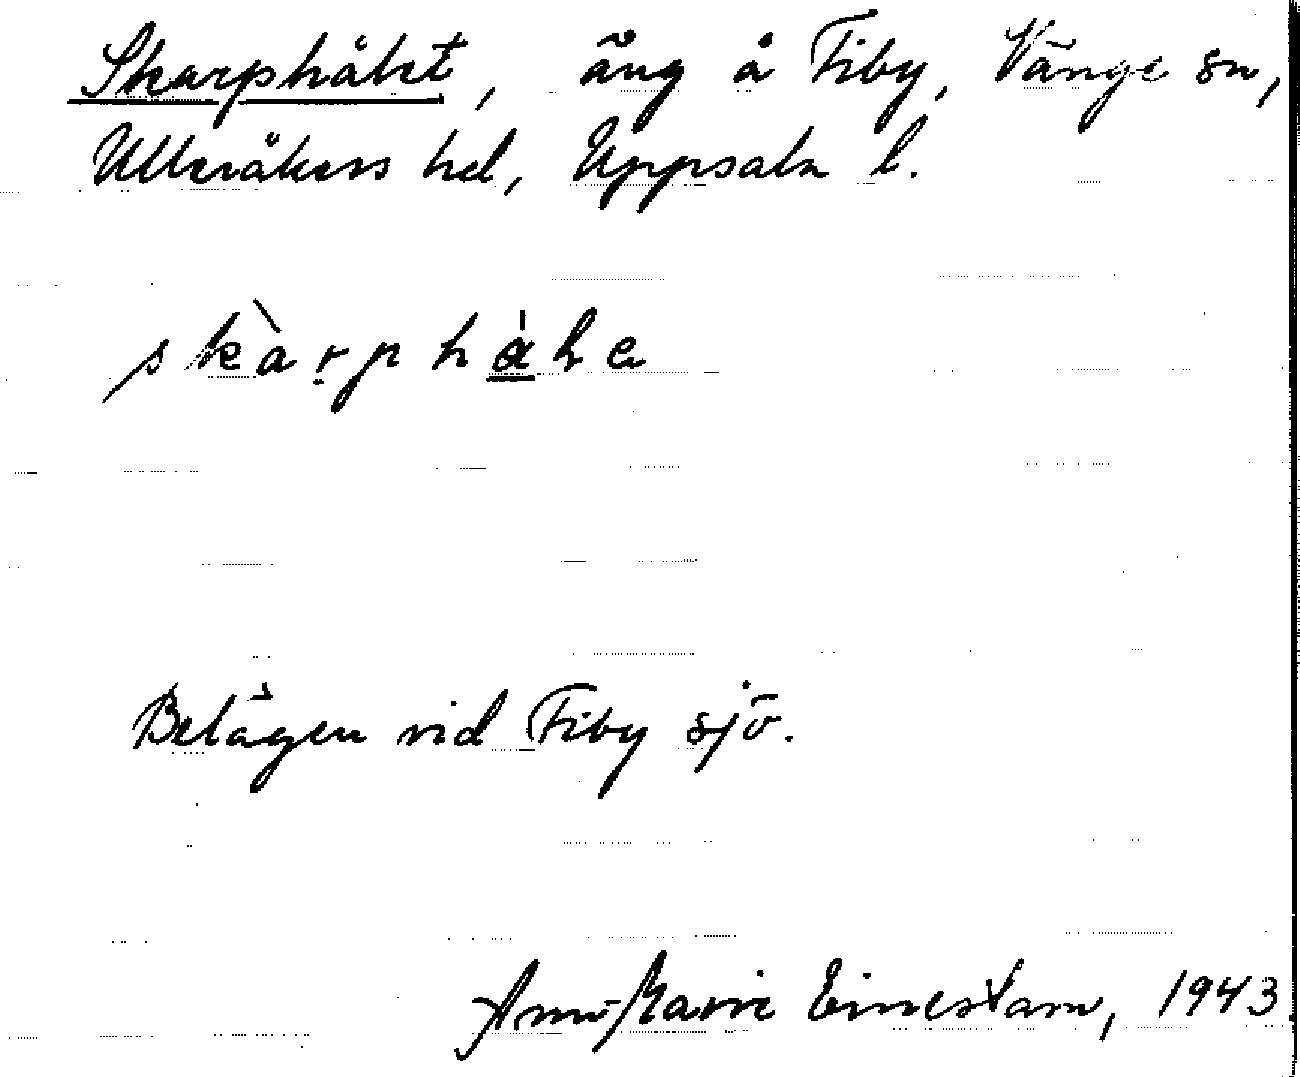 Skarphålet, äng å Fiby, Vänge sn,
Ulleråkers hd, Uppsala l.
Belägen vid Fiby sjö.
Ann-Marie Einestam, 1943.